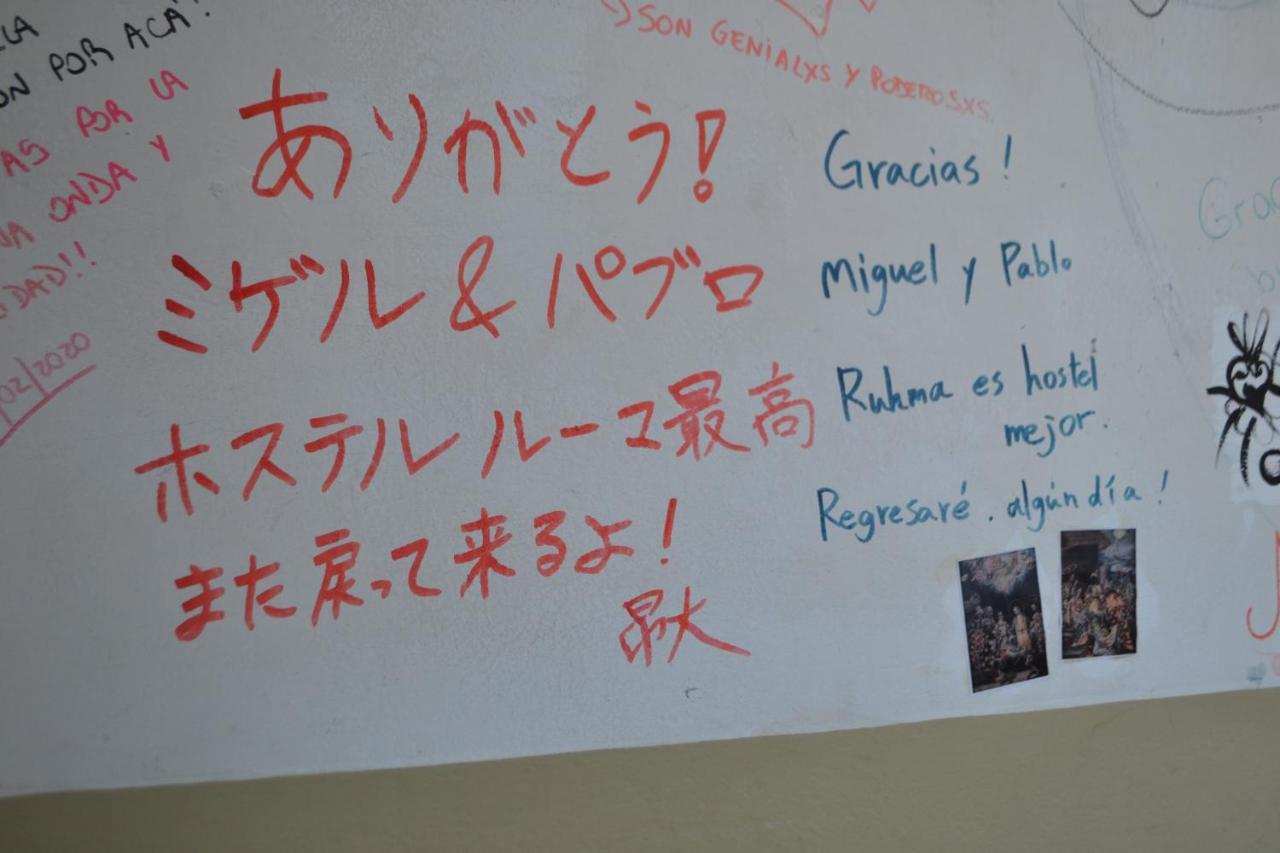 POR ACA!
POR LA
ONDA Y
DAD!!
02/2020
SON GENIALXS Y PODEROSXS.
ありがとう!
ミゲル & パブロ
ホステル ルーマ最高
また戻って来るよ!
昂大
Gracias !
Miguel y Pablo
Ruhma es hostel
mejor.
Regresaré. algún día !